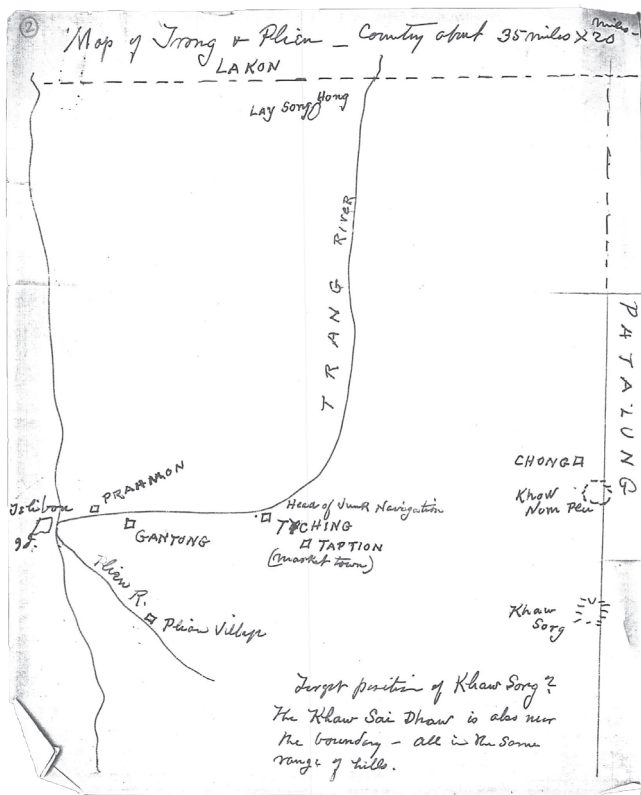 ②
Map of Trong & Plian – Country about 35 miles X 20 miles
LAKON
LAY Song Hong
TRANG River
PATALUNG
CHONG
Khow
Nom Peu
PRAHMON
Islibou
GANTONG
Head of Junk Navigation
TYCHING
TAPTION
(market town)
Plian R.
Plian Village
Khaw
Song
Forgot position of Khaw Song?
The Khaw Sai Dhaw is also near
the boundary – all in the same
range of hills.